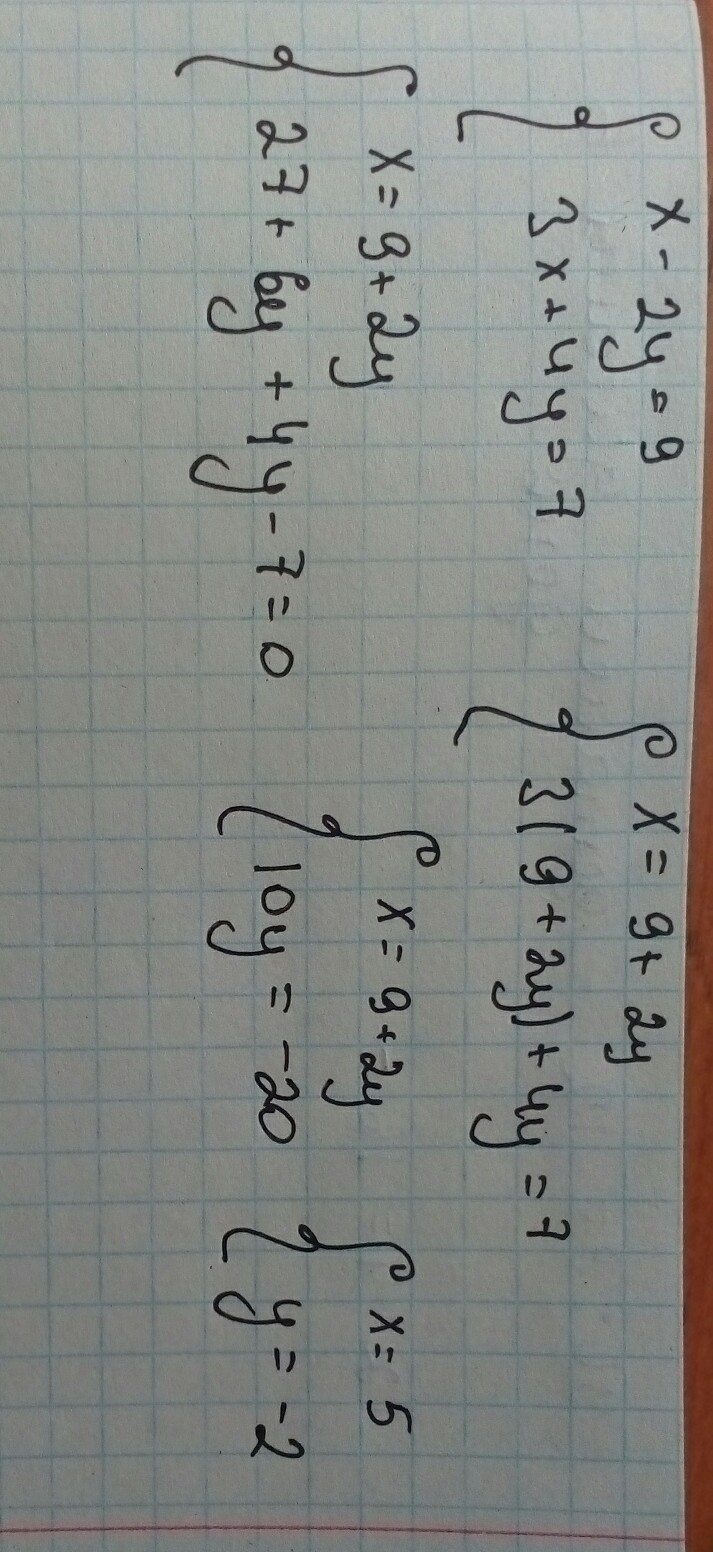 x - 2y = 9
3x + 4y = 7
x = 9 + 2y
3(9 + 2y) + 4y = 7
x = 9 + 2y
27 + 6y + 4y - 7 = 0
x = 9 + 2y
10y = -20
x = 5
y = -2